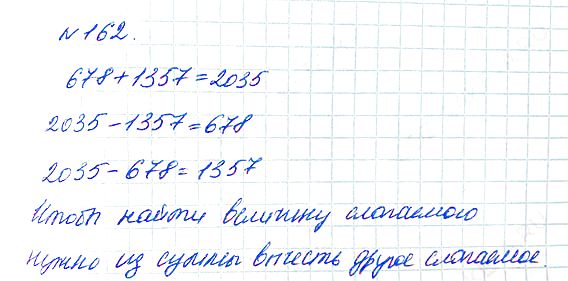 №162.
678+1357=2035
2035-1357=678
2035-678=1357
Чтобы найти величину слагаемого
нужно из суммы вычесть другое слагаемое.